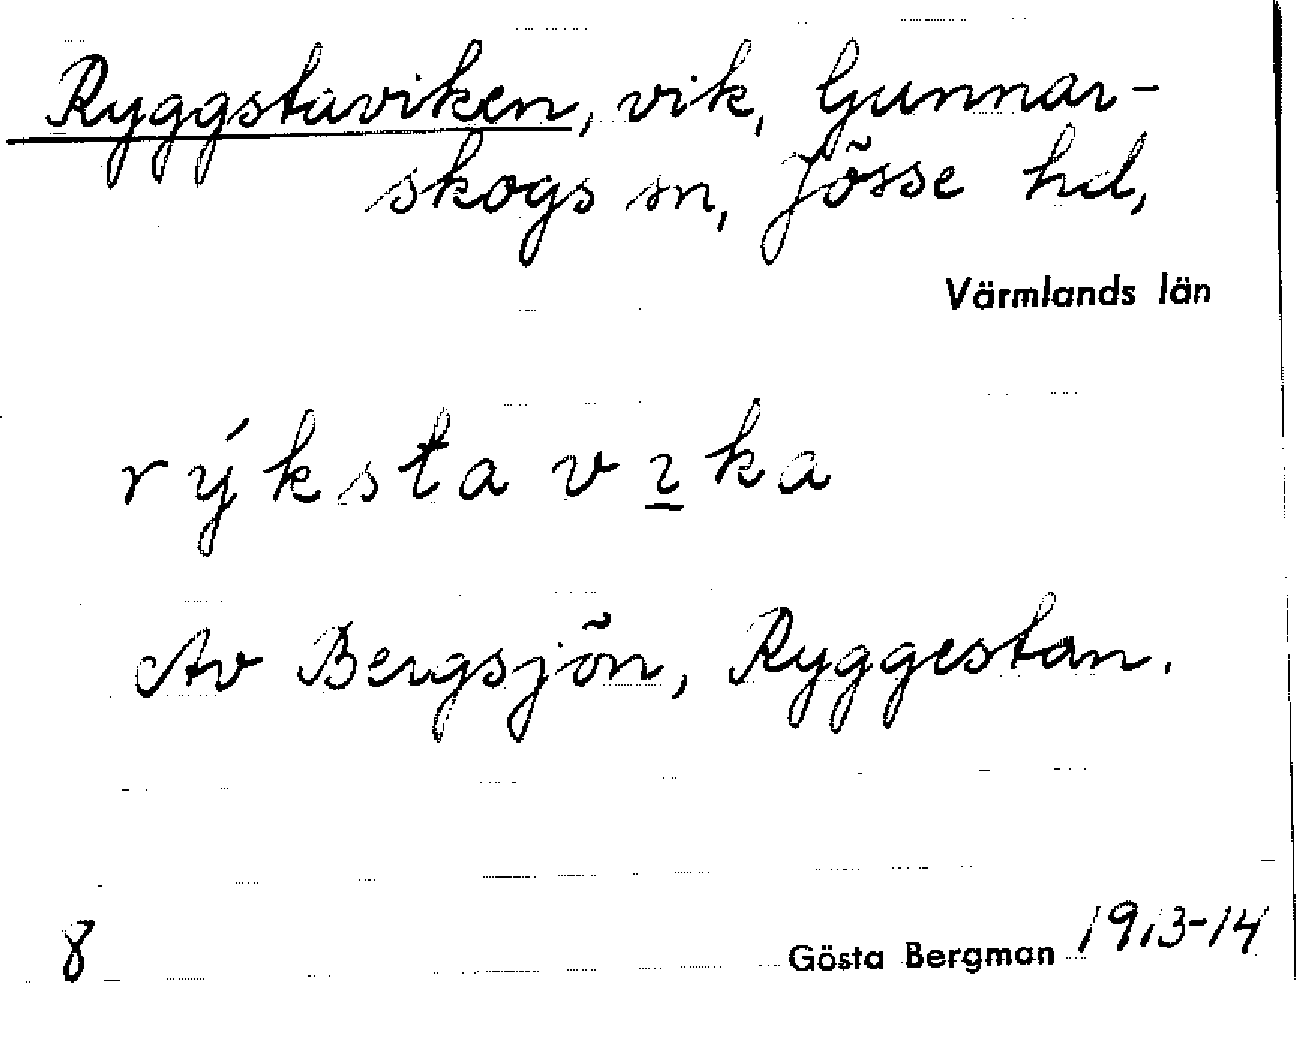 Ryggstaviken, vik, Gunnar-
skogs sn, Jösse hd,
Värmlands län
rýksta vı̲ka
Av Bergsjön, Ryggestan.
8
Gösta Bergman 1913-14